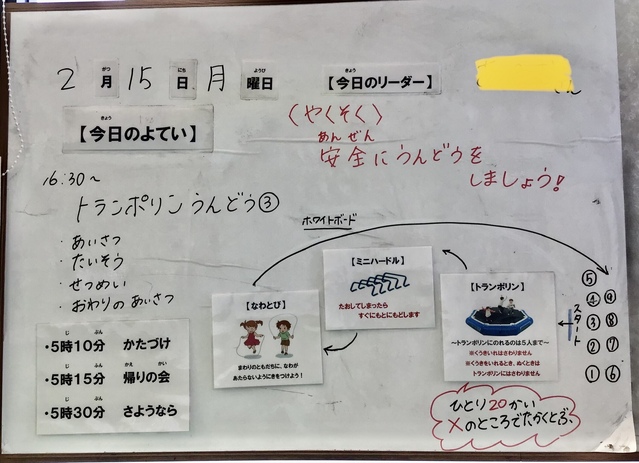 2月15日月曜日
がつ にち ようび
【今日のリーダー】
きょう
【今日のよてい】
きょう
〈やくそく〉
あんぜん
安全にうんどうを
しましょう!
16:30〜
トランポリンうんどう③
・あいさつ
・たいそう
・せつめい
・おわりのあいさつ
じ ぷん
・5時10分 かたづけ
じ ふん かえ かい
・5時15分 帰りの会
じ ぷん
・5時30分 さようなら
ホワイトボード
【なわとび】
まわりのともだちに、なわが
あたらないようにきをつけよう!
【ミニハードル】
たおしてしまったら
すぐにもとにもどします
【トランポリン】
〜トランポリンにのれるのは5人まで〜
※くうきいれはさわりません
※くうきをいれるとき、ぬくときは
トランポリンにはさわりません
スタート
⑤
④ ⑨
③ ⑧
② ⑦
① ⑥
ひとり20かい
×のところでたかくとぶ、